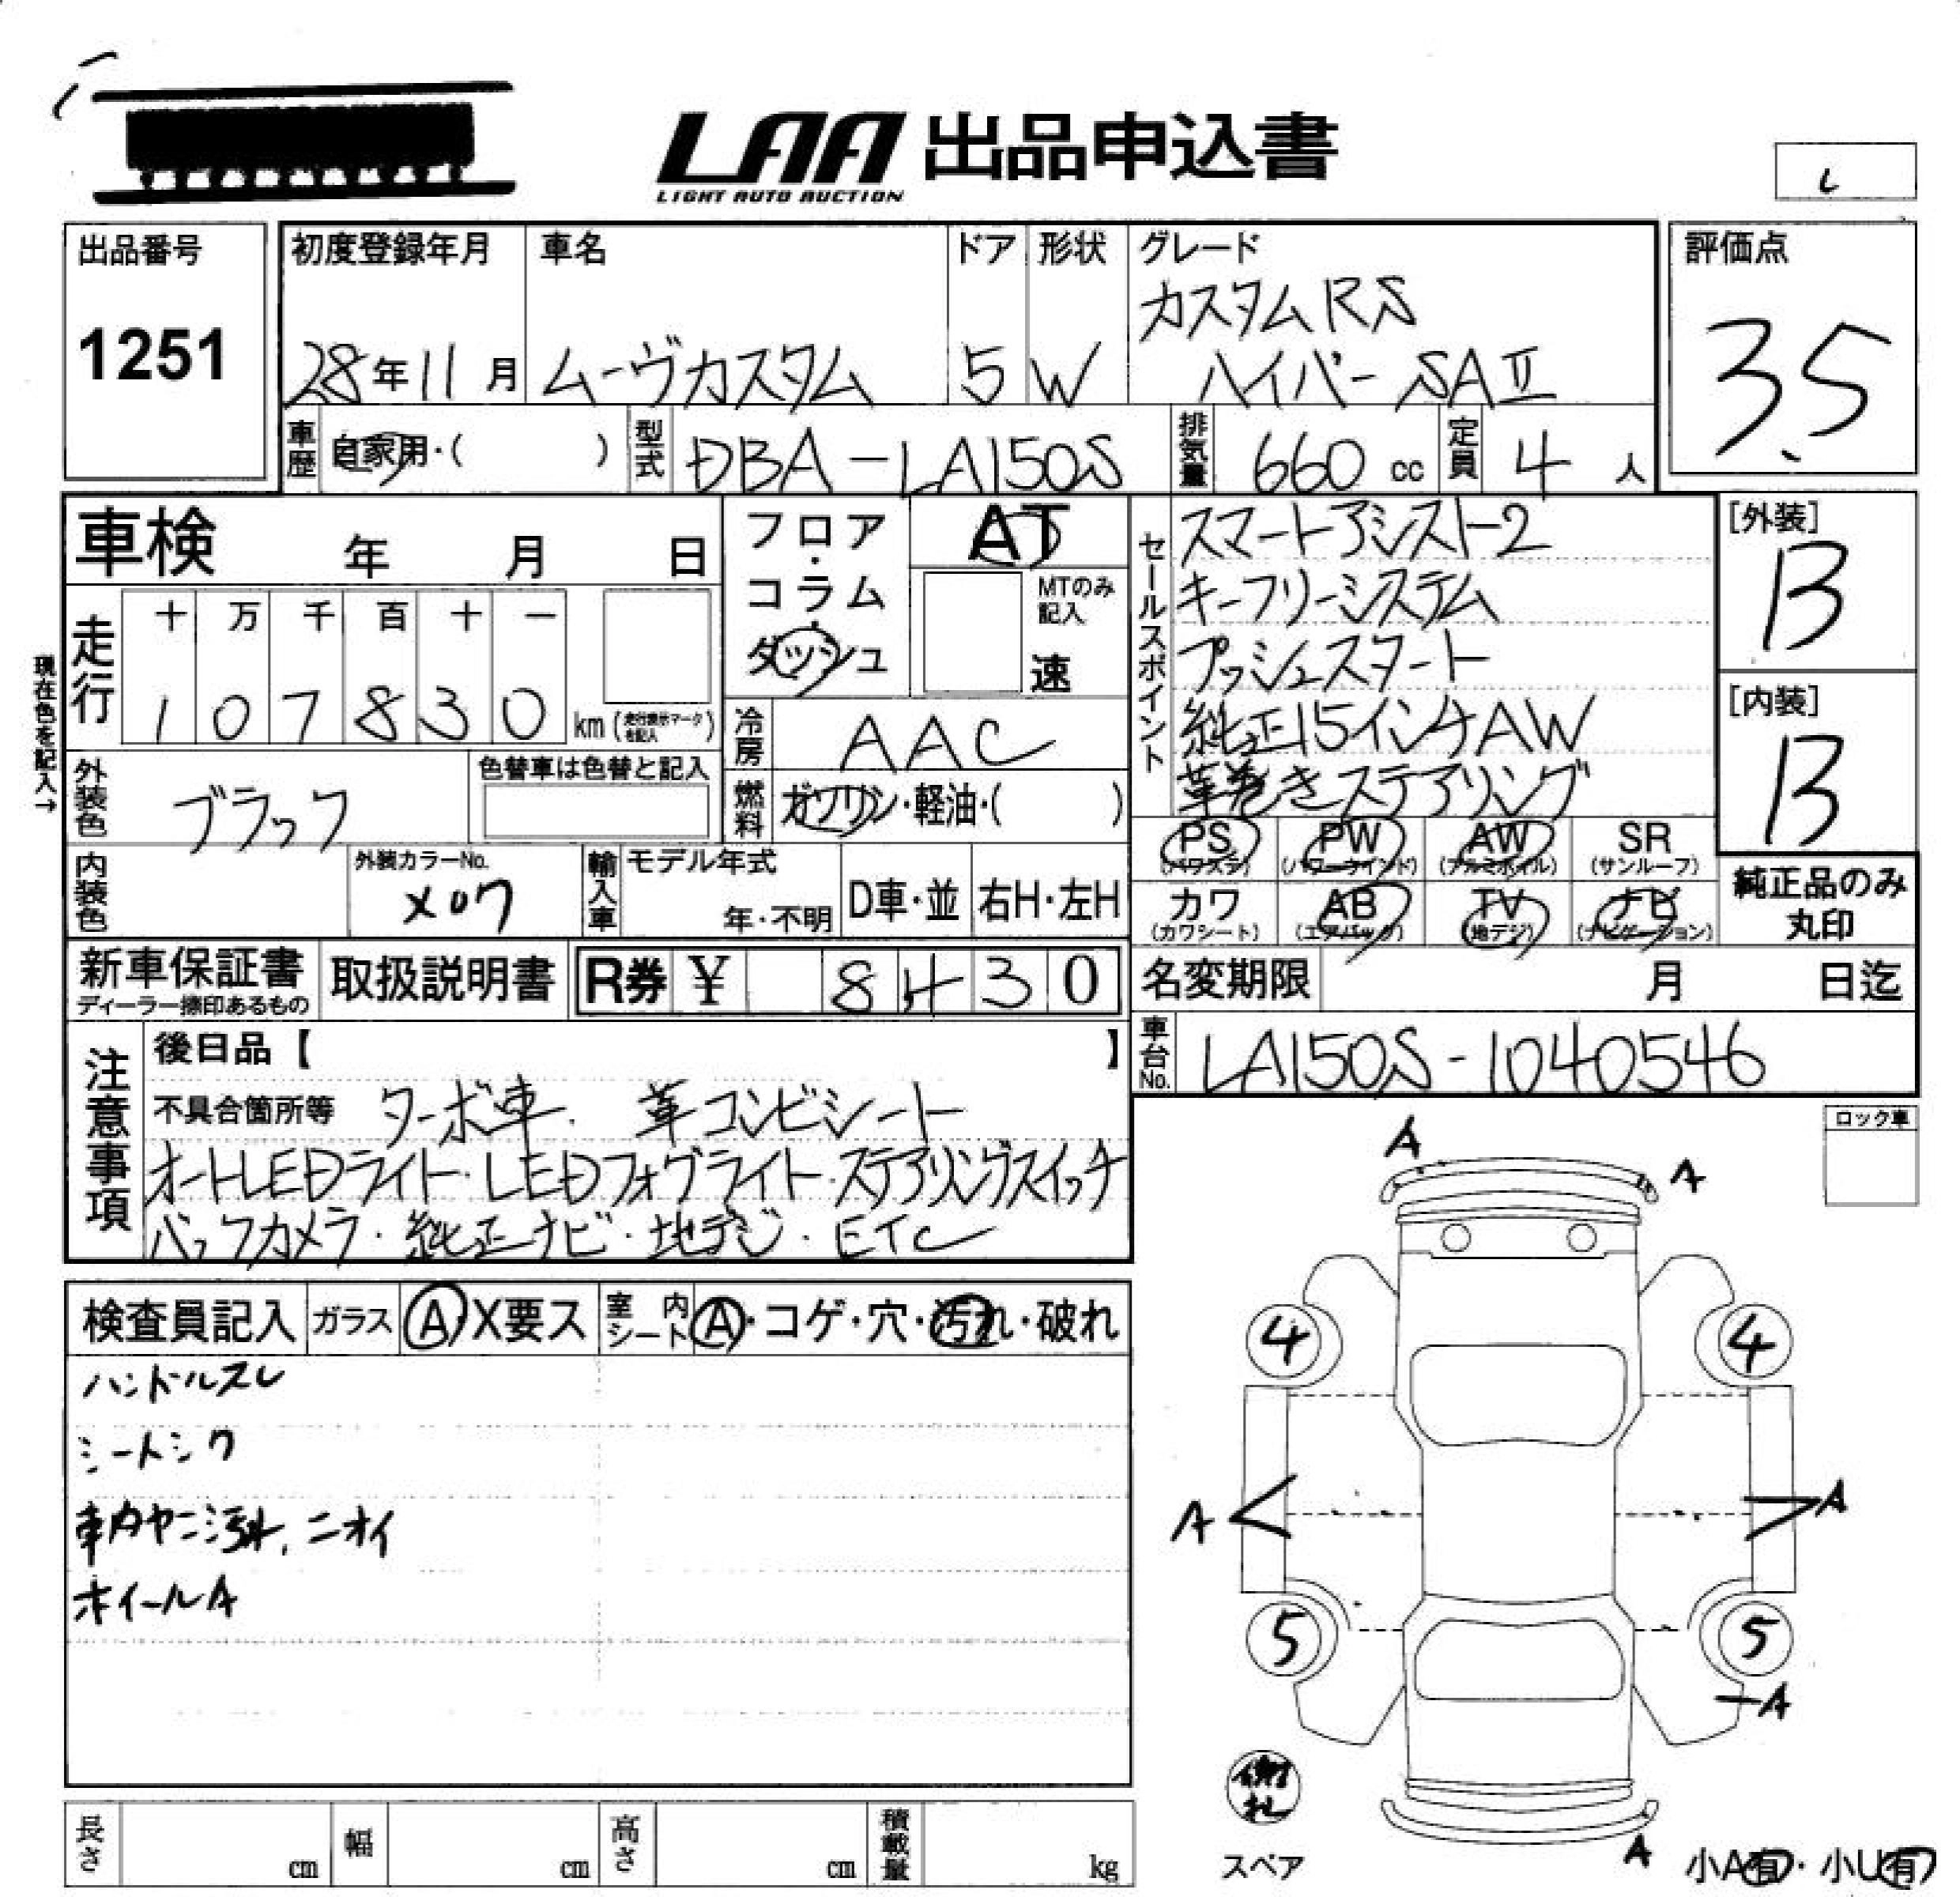 LAA 出品申込書
LIGHT AUTO AUCTION
し
出品番号
1251
初度登録年月
28年11月
車名
ムーヴカスタム
ドア
5
形状
W
グレード
カスタムRS
ハイパーSAⅡ
評価点
3.5
車歴 自家用・( )
型式 DBA-LA150S
排気量 660 cc
定員 4 人
車検 年 月 日
フロア・コラム・ダッシュ
AT
MTのみ記入
速
セールスポイント
スマートアシスト2
キーフリーシステム
プッシュスタート
純正15インチAW
革巻きステアリング
[外装]
B
[内装]
B
現在色を記入→
走行
十 万 千 百 十 一
1 0 7 8 3 0 km (走行表示マークを記入)
冷房 AAC
外装色 ブラック
色替車は色替と記入
燃料 ガソリン・軽油・( )
PS (パワステ)
PW (パワーウインド)
AW (アルミホイル)
SR (サンルーフ)
カワ (カワシート)
AB (エアバック)
TV (地デジ)
ナビ (ナビゲーション)
純正品のみ丸印
内装色
外装カラーNo.
X07
輸入車
モデル年式
年・不明
D車・並
右H・左H
新車保証書
ディーラー捺印あるもの
取扱説明書
R券 ¥ 8430
名変期限 月 日迄
車台No. LA150S-1040546
注意事項
後日品【 】
不具合箇所等 ターボ車. 革コンビシート
オートLEDライト・LEDフォグライト・ステアリングスイッチ
バックカメラ・純正ナビ・地デジ・ETC
ロック車
A
A
検査員記入
ガラス A・X要ス
室内シート A・コゲ・穴・汚れ・破れ
ハンドルスレ
シートシワ
車内ヤニ汚れ、ニオイ
ホイールA
4 4
A A
5 5
A
スペア
A
小A有・小U有
長さ cm
幅 cm
高さ cm
積載量 kg